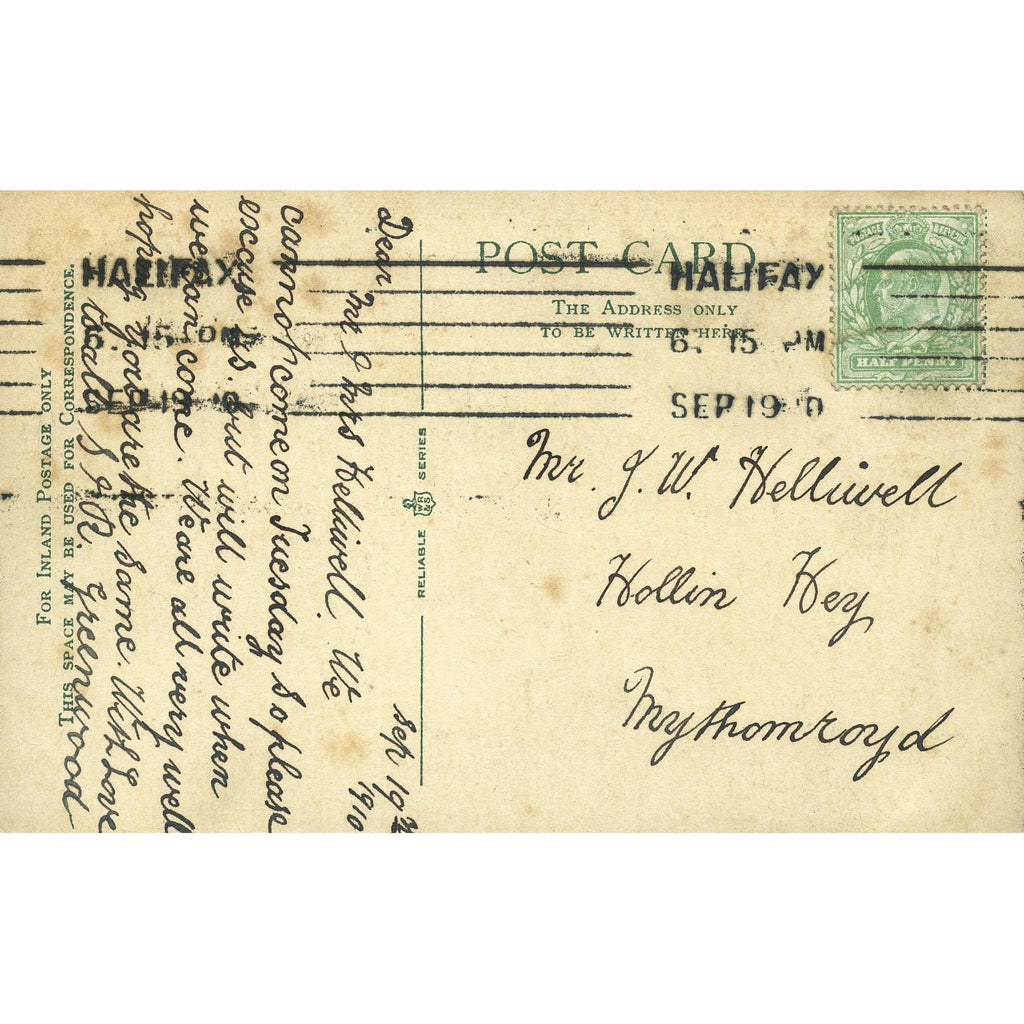 POST CARD
THE ADDRESS ONLY
TO BE WRITTEN HERE
POSTAGE REVENUE
HALF PENNY
HALIFAX
6. 15 PM
SEP 19 10
HALIFAX
6. 15 PM
SEP 19 10
Mr. J. W. Helliwell
Hollin Hey
Mytholmroyd
RELIABLE
WR&S
SERIES
FOR INLAND POSTAGE ONLY
THIS SPACE MAY BE USED FOR CORRESPONDENCE.
Sep 19th
1910
Dear Mr & Mrs Helliwell. We
cannot come on Tuesday so please
excuse us. but will write when
we can come. We are all very well
hoping you are the same. With Love
Greenwood